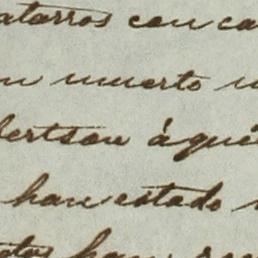 catarros con ca
n muerto
bertson áqué
han estado
han